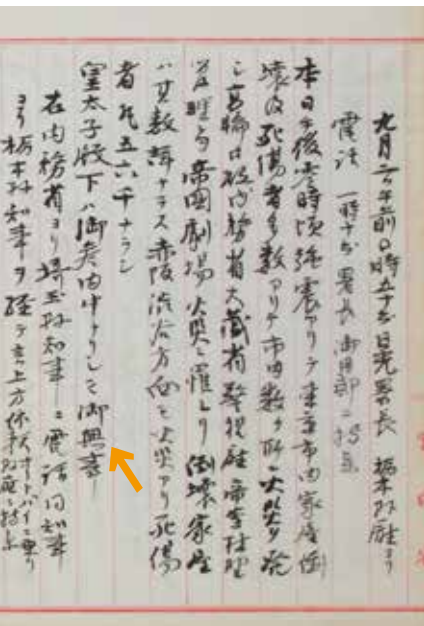 九月二日午前〇時五十分日光署長 栃木県庁ヨリ
電話 一時十分署長御用邸ニ持参
本日午後零時頃強震アリテ東京市内家屋倒
壊及死傷者多数アリテ市内数ヶ所ニ火災ヲ
宮城 内務省大蔵省警視庁帝室林野
管理局帝国劇場火災ニ罹レリ倒壊家屋
ハ其数 ナラス赤阪渋谷方面ニ火災アリ死傷
者凡五六千ナラン
皇太子殿下ハ御参内中ナリシモ御無事
右内務省ヨリ埼玉県知事ニ電話同知事
ヨリ栃木県知事ヲ経テ オートバイニ乗リ